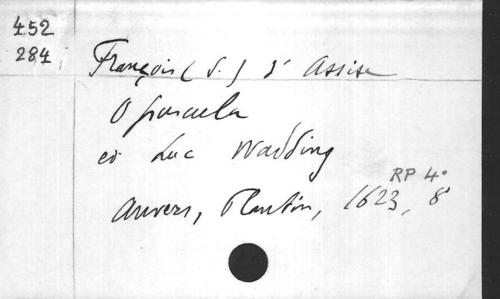 452
284
François (S.) d' Assise
Opuscula
ed Luc Wadding
RP 4°
Anvers, Plantin, 1623, 8°